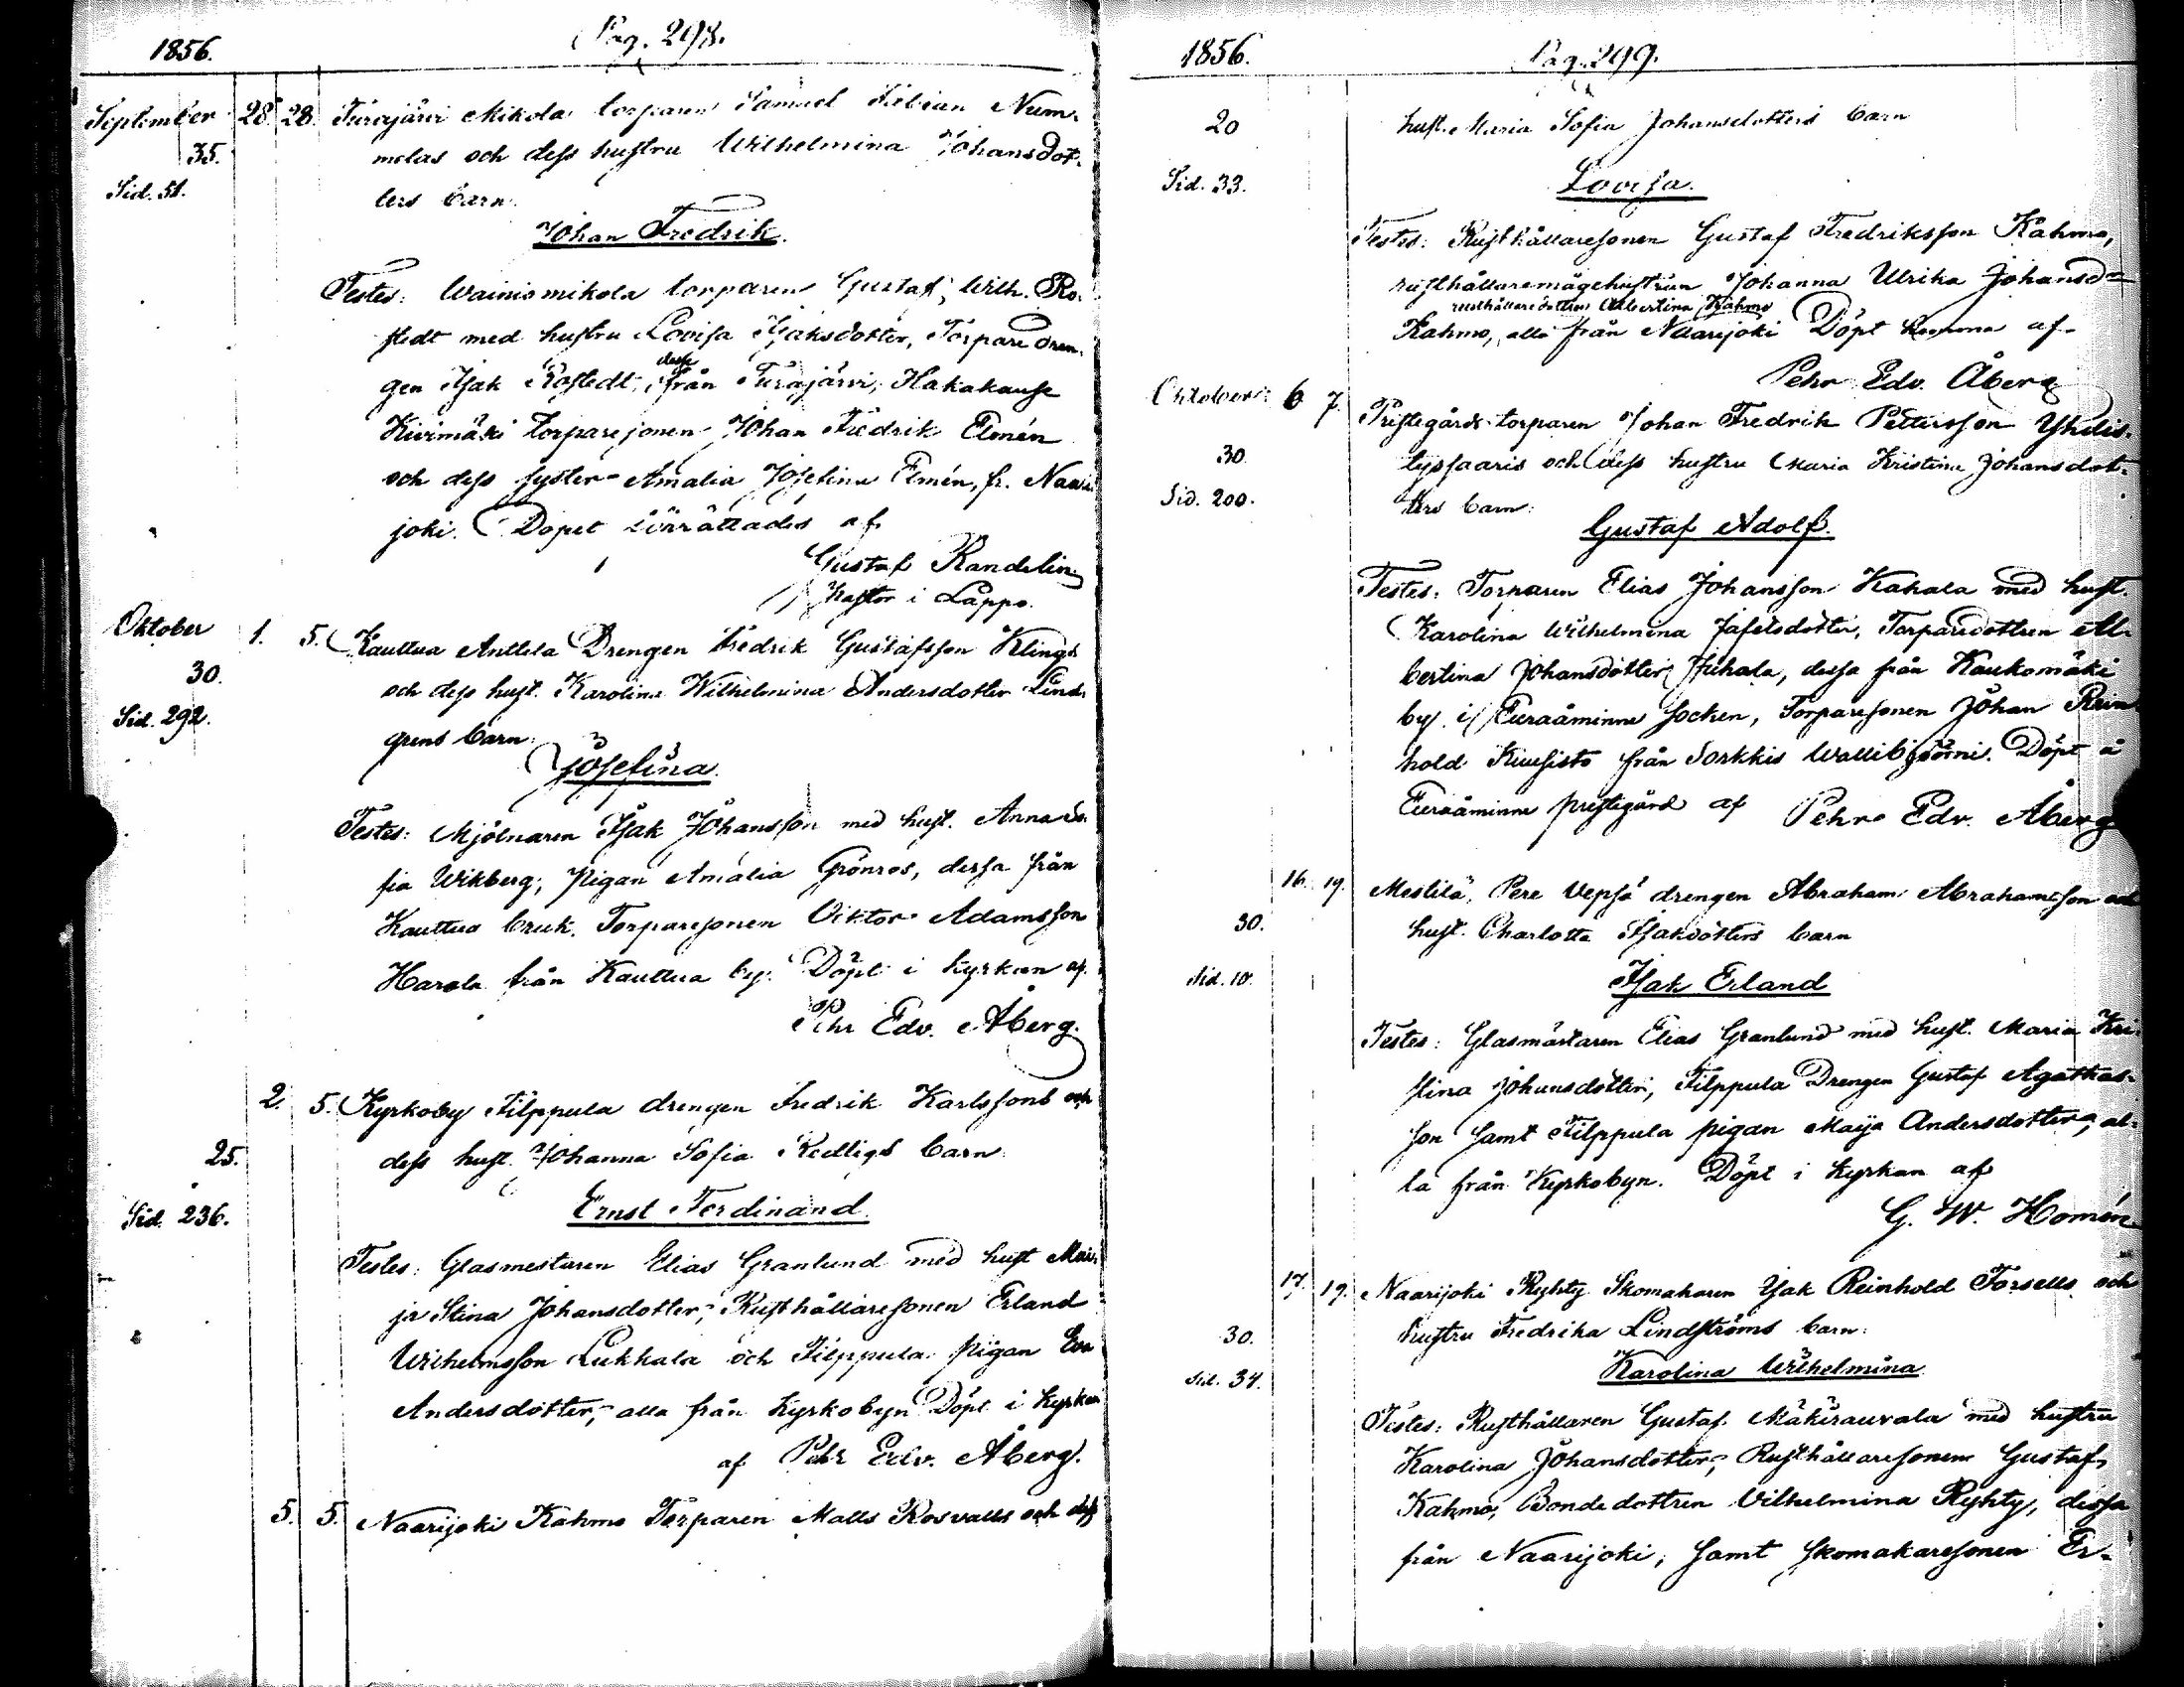 1856.
Pag. 298.
September 28. 28. Turajärvi Mikola torparen Samuel Fabian Num-
35. melas och dess hustru Wilhelmina Johansdot-
Sid. 51. ters barn.
Johan Fredrik.
Testes: Wainiomikola torparen Gustaf Wilh. Ro-
stedt med hustru Lovisa Isaksdotter, Torpare dren-
desse
gen Isak Rostedt, från Turajärvi, Hakakause
Kivimäki torparesonen Johan Fredrik Elmén
och dess syster Amalia Josefina Elmén, fr. Naari-
joki. Dopet förrättades af
Gustaf Randelin
Pastor i Lappo.
Oktober 1. 5. Kauttua Anttila Drengen Fredrik Gustafsson Klings
30. och dess hust. Karolina Wilhelmina Andersdotter Lind-
Sid. 292. grens barn:
Josefina.
Testes: Mjölnaren Isak Johansson med hust. Anna So-
fia Wikberg; Pigan Amalia Grönros, dessa från
Kauttua bruk. Torparesonen Viktor Adamsson
Harola från Kauttua by. Döpt i kyrkan af
Pehr Edv. Åberg.
2. 5. Kyrkoby Filppula drengen Fredrik Karlssons och
25. dess hust. Johanna Sofia Redligs barn
Sid. 236. Ernst Ferdinand.
Testes: Glasmestaren Elias Granlund med hust Mai-
ja Stina Johansdotter; Rusthållaresonen Erland
Wilhelmsson Lukkala och Filppula pigan Eva
Andersdotter, alla från Kyrkobyn Döpt i kyrkan
af Pehr Edv. Åberg.
5. 5. Naarijoki Kahmo Torparen Matts Rosvalls och dess
1856.
Pag. 299.
20 hust. Maria Sofia Johansdotters barn
Sid. 33. Lovisa.
Testes: Rusthållaresonen Gustaf Fredriksson Kahmo,
rusthållaremågehustrun Johanna Ulrika Johansd=
rusthållaredottren Albertina Kahmo
Kahmo, alla från Naarijoki Döpt hemma af
Pehr Edv. Åberg
Oktober 6 7. Prestegårds torparen Johan Fredrik Pettersson Yhdis-
30. tyssaaris och dess hustru Maria Kristina Johansdot-
Sid. 200. ters barn:
Gustaf Adolf.
Testes: Torparen Elias Johansson Kahala med hust.
Karolina Wilhelmina Jafetsdotter, Torparedottren Al-
bertina Johansdotter Juhala, dessa från Kaukomäki
by i Euraåminne socken, Torparesonen Johan Rein-
hold Kuusisto från Sorkkis Wallibjörni. Döpt å
Euraåminne prestegård af Pehr Edv. Åberg
16. 19. Mestilä, Pere Vepsä drengen Abraham Abrahamsson och
30. hust. Charlotta Isaksdotters barn
Sid. 10. Isak Erland
Testes: Glasmästaren Elias Granlund med hust. Maria Kri-
stina Johansdotter, Filppula Drengen Gustaf Agathas-
son samt Filppula pigan Maija Andersdotter, al-
la från Kyrkobyn. Döpt i kyrkan af
G. W. Homén
17. 19. Naarijoki Ryhty Skomakaren Isak Reinhold Forsells och
30. hustru Fredrika Lindströms barn:
Sid. 34. Karolina Wilhelmina
Testes: Rusthållaren Gustaf Mäkirauvala med hustru
Karolina Johansdotter, Rusthållaresonen Gustaf
Kahmo, Bondedottren Vilhelmina Ryhty, dessa
från Naarijoki, samt skomakaresonen Er-